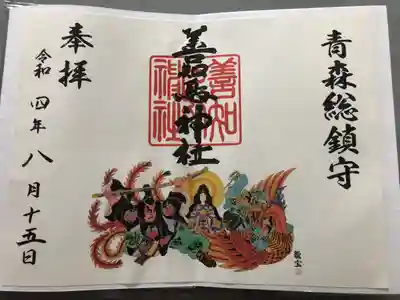 青森総鎮守
善知鳥神社
善知鳥神社
奉拝
令和四年八月十五日